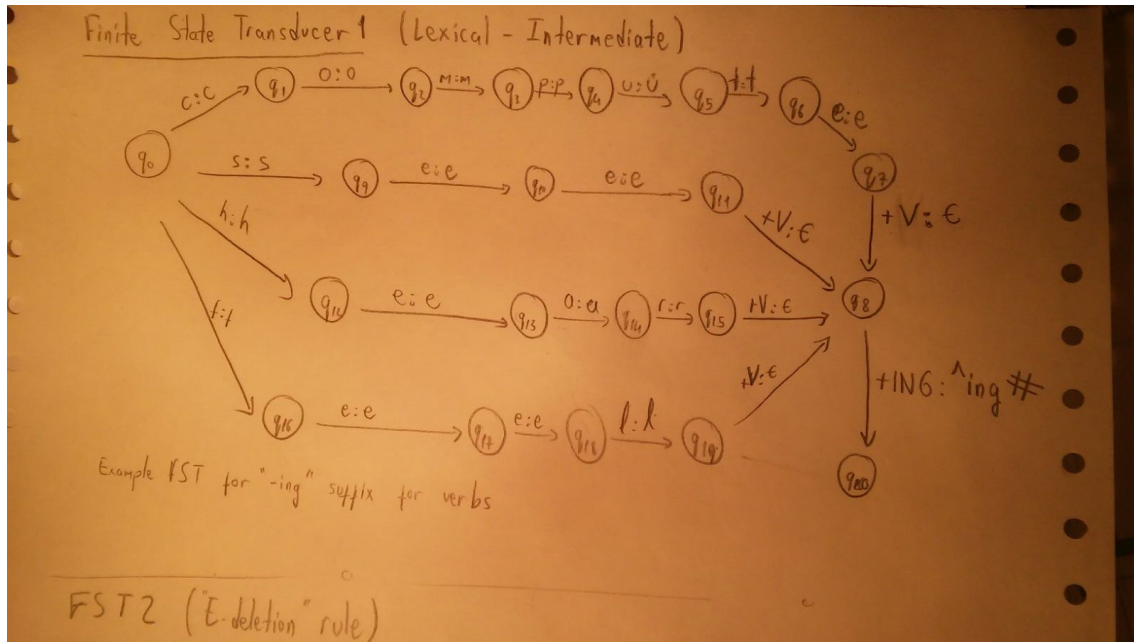 Finite State Transducer 1 (Lexical - Intermediate)
c:c q1 o:o q2 m:m q3 p:p q4 u:u q5 t:t q6 e:e q7
q0 s:s q9 e:e q10 e:e q11 +V:ϵ +V:ϵ
h:h q12 e:e q13 a:a q14 r:r q15 +V:ϵ q8
f:f q16 e:e q17 e:e q18 l:l q19 +V:ϵ +ING:^ing#
q20
Example FST for "-ing" suffix for verbs
FST2 ("E-deletion" rule)